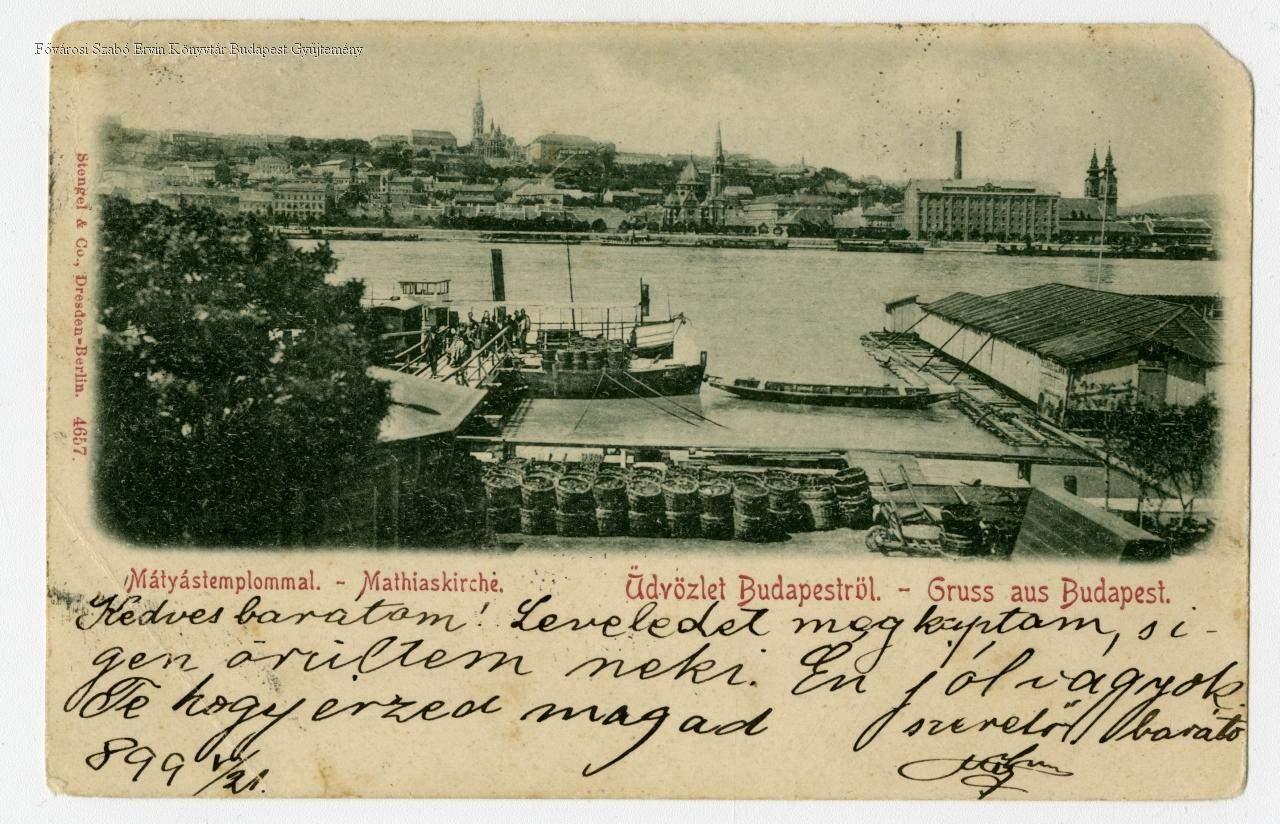 Fővárosi Szabó Ervin Könyvtár Budapest Gyűjtemény
Stengel & Co., Dresden-Berlin. 4657.
Mátyástemplommal. - Mathiaskirche.
Üdvözlet Budapestről. - Gruss aus Budapest.
Kedves baratom! Leveledet megkaptam, si-
gen örültem neki. En jól vagyok
Te hogy erzed magad szerető barato
899 /21.